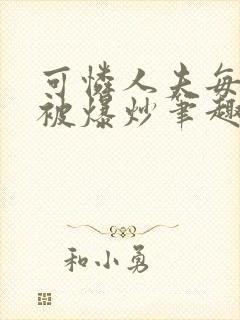 可怜人夫每
被爆炒笔趣
和小勇